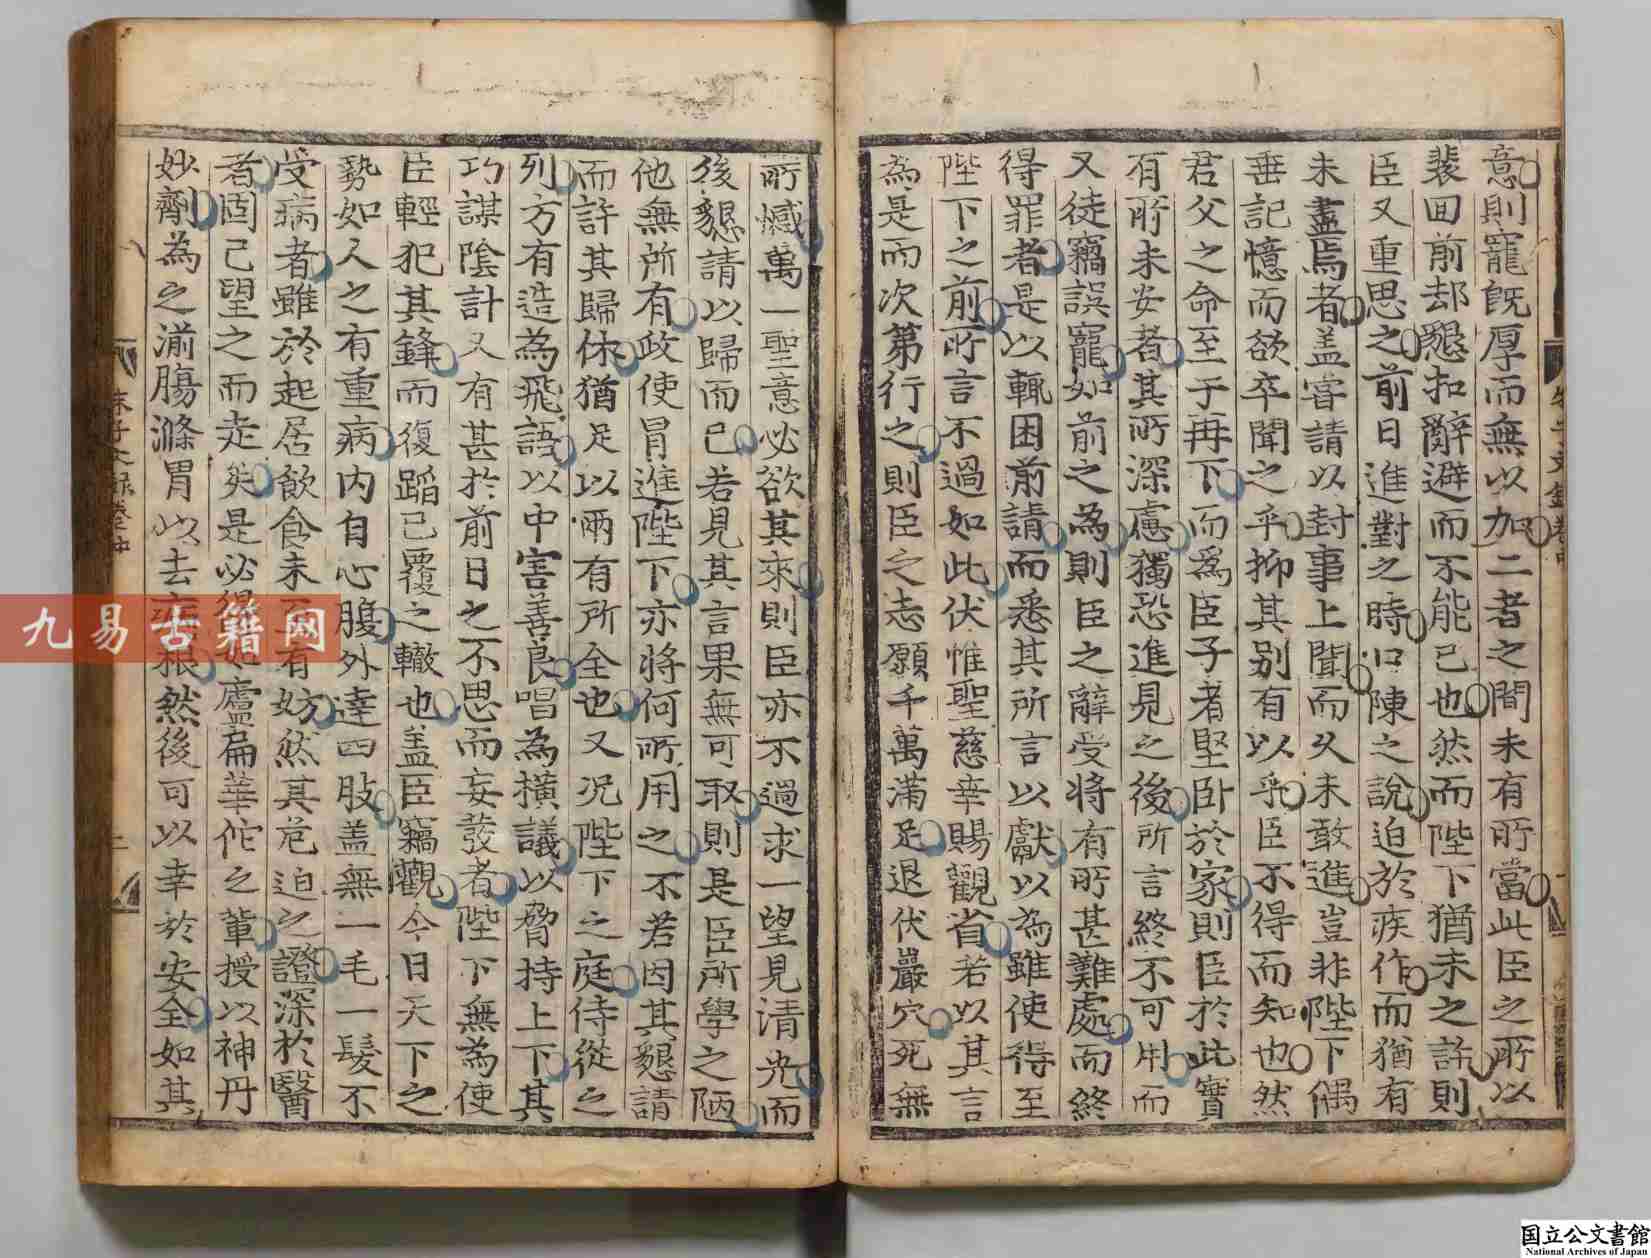 意則寵旣厚而無以加二者之間未有所當此臣之所以
裴回前却懇扣辭避而不能已也然而陛下猶未之許則
臣又重思之前日進對之時口陳之說迫於疾作而猶有
未盡焉者盖嘗請以封事上聞而久未敢進豈非陛下偶
垂記憶而欲卒聞之乎抑其别有以乎臣不得而知也然
君父之命至于再下而爲臣子者堅卧於家則臣於此實
有所未安者其所深慮獨恐進見之後所言終不可用而
又徒竊誤寵如前之為則臣之辭受將有所甚難處而終
得罪者是以輒困前請而悉其所言以獻以為雖使得至
陛下之前所言不過如此伏惟聖慈幸賜觀省若以其言
為是而次第行之則臣之志願千萬滿足退伏巖穴死無
所憾萬一聖意必欲其來則臣亦不過求一望見清光而
後懇請以歸而已若見其言果無可取則是臣所學之陋
他無所有政使冒進陛下亦將何所用之不若因其懇請
而許其歸休猶足以兩有所全也又况陛下之庭侍從之
列方有造為飛語以中害善良唱為橫議以脅持上下其
巧謀陰計又有甚於前日之不思而妄發者陛下無為使
臣輕犯其鋒而復蹈已覆之轍也盖臣竊觀今日天下之
勢如人之有重病内自心腹外達四肢盖無一毛一髮不
受病者雖於起居飲食未至有妨然其危迫之證深於醫
者固已望之而走矣是必得如盧扁華佗之輩授以神丹
妙劑為之湔腸滌胃以去病根然後可以幸於安全如其
朱子文録卷之中
二
九易古籍网
国立公文書館
National Archives of Japan